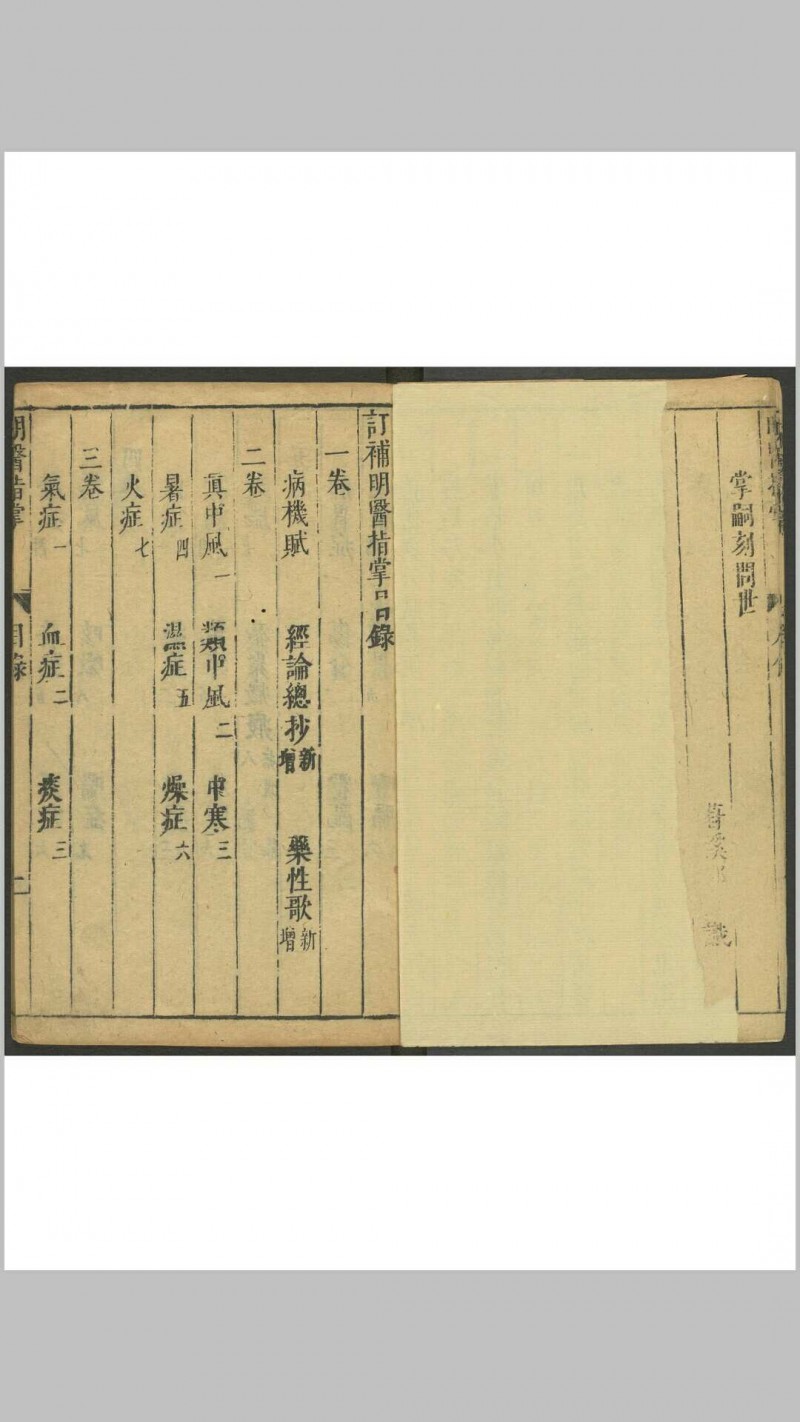 掌嗣刻問世
識
訂補明醫指掌目錄
一卷
病機賦 經論總抄新增 藥性歌新增
二卷
眞中風一 類中風二 中寒三
暑症四 濕症五 燥症六
火症七
三卷
氣症一 血症二 痰症三
明醫指掌 目錄